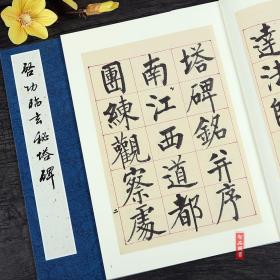 启功临玄秘塔碑
塔碑銘并序
南江西道都
團練觀察處
二